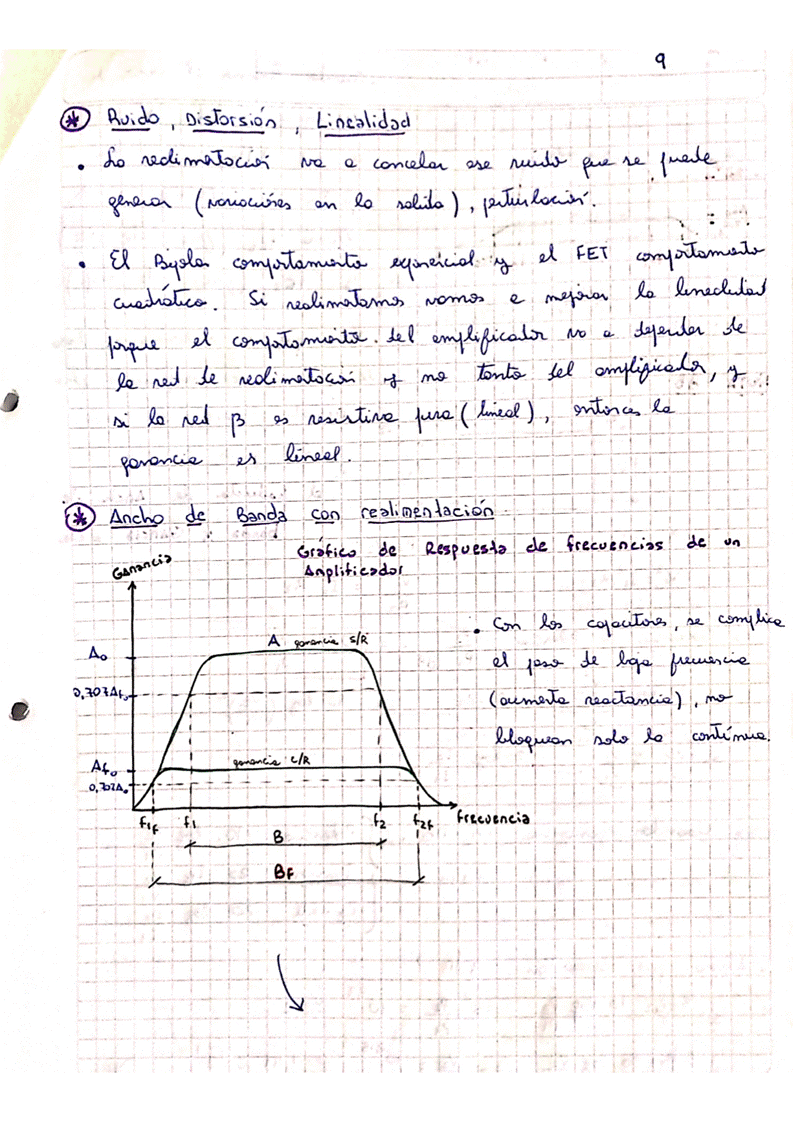 9
* Ruido, Distorsión, Linealidad
• La realimentación va a cancelar ese ruido que se puede
generar (variaciones en la salida), perturbación.
• El Bipolar comportamiento exponencial y el FET comportamiento
cuadrático. Si realimentamos vamos a mejorar la linealidad
porque el comportamiento del amplificador va a depender de
la red de realimentación y no tanto del amplificador, y
si la red β es resistiva pura (lineal), entonces la
ganancia es lineal.
* Ancho de Banda con realimentación
Gráfico de Respuesta de frecuencias de un
Amplificador
Ganancia
A ganancia S/R
A₀
0,707A₀
ganancia C/R
Af₀
0,707A₀
f1f f1 f2 f2f Frecuencia
B
Bf
• Con los capacitores, se complica
el paso de baja frecuencia
(aumenta reactancia), no
bloquean solo la contínua.